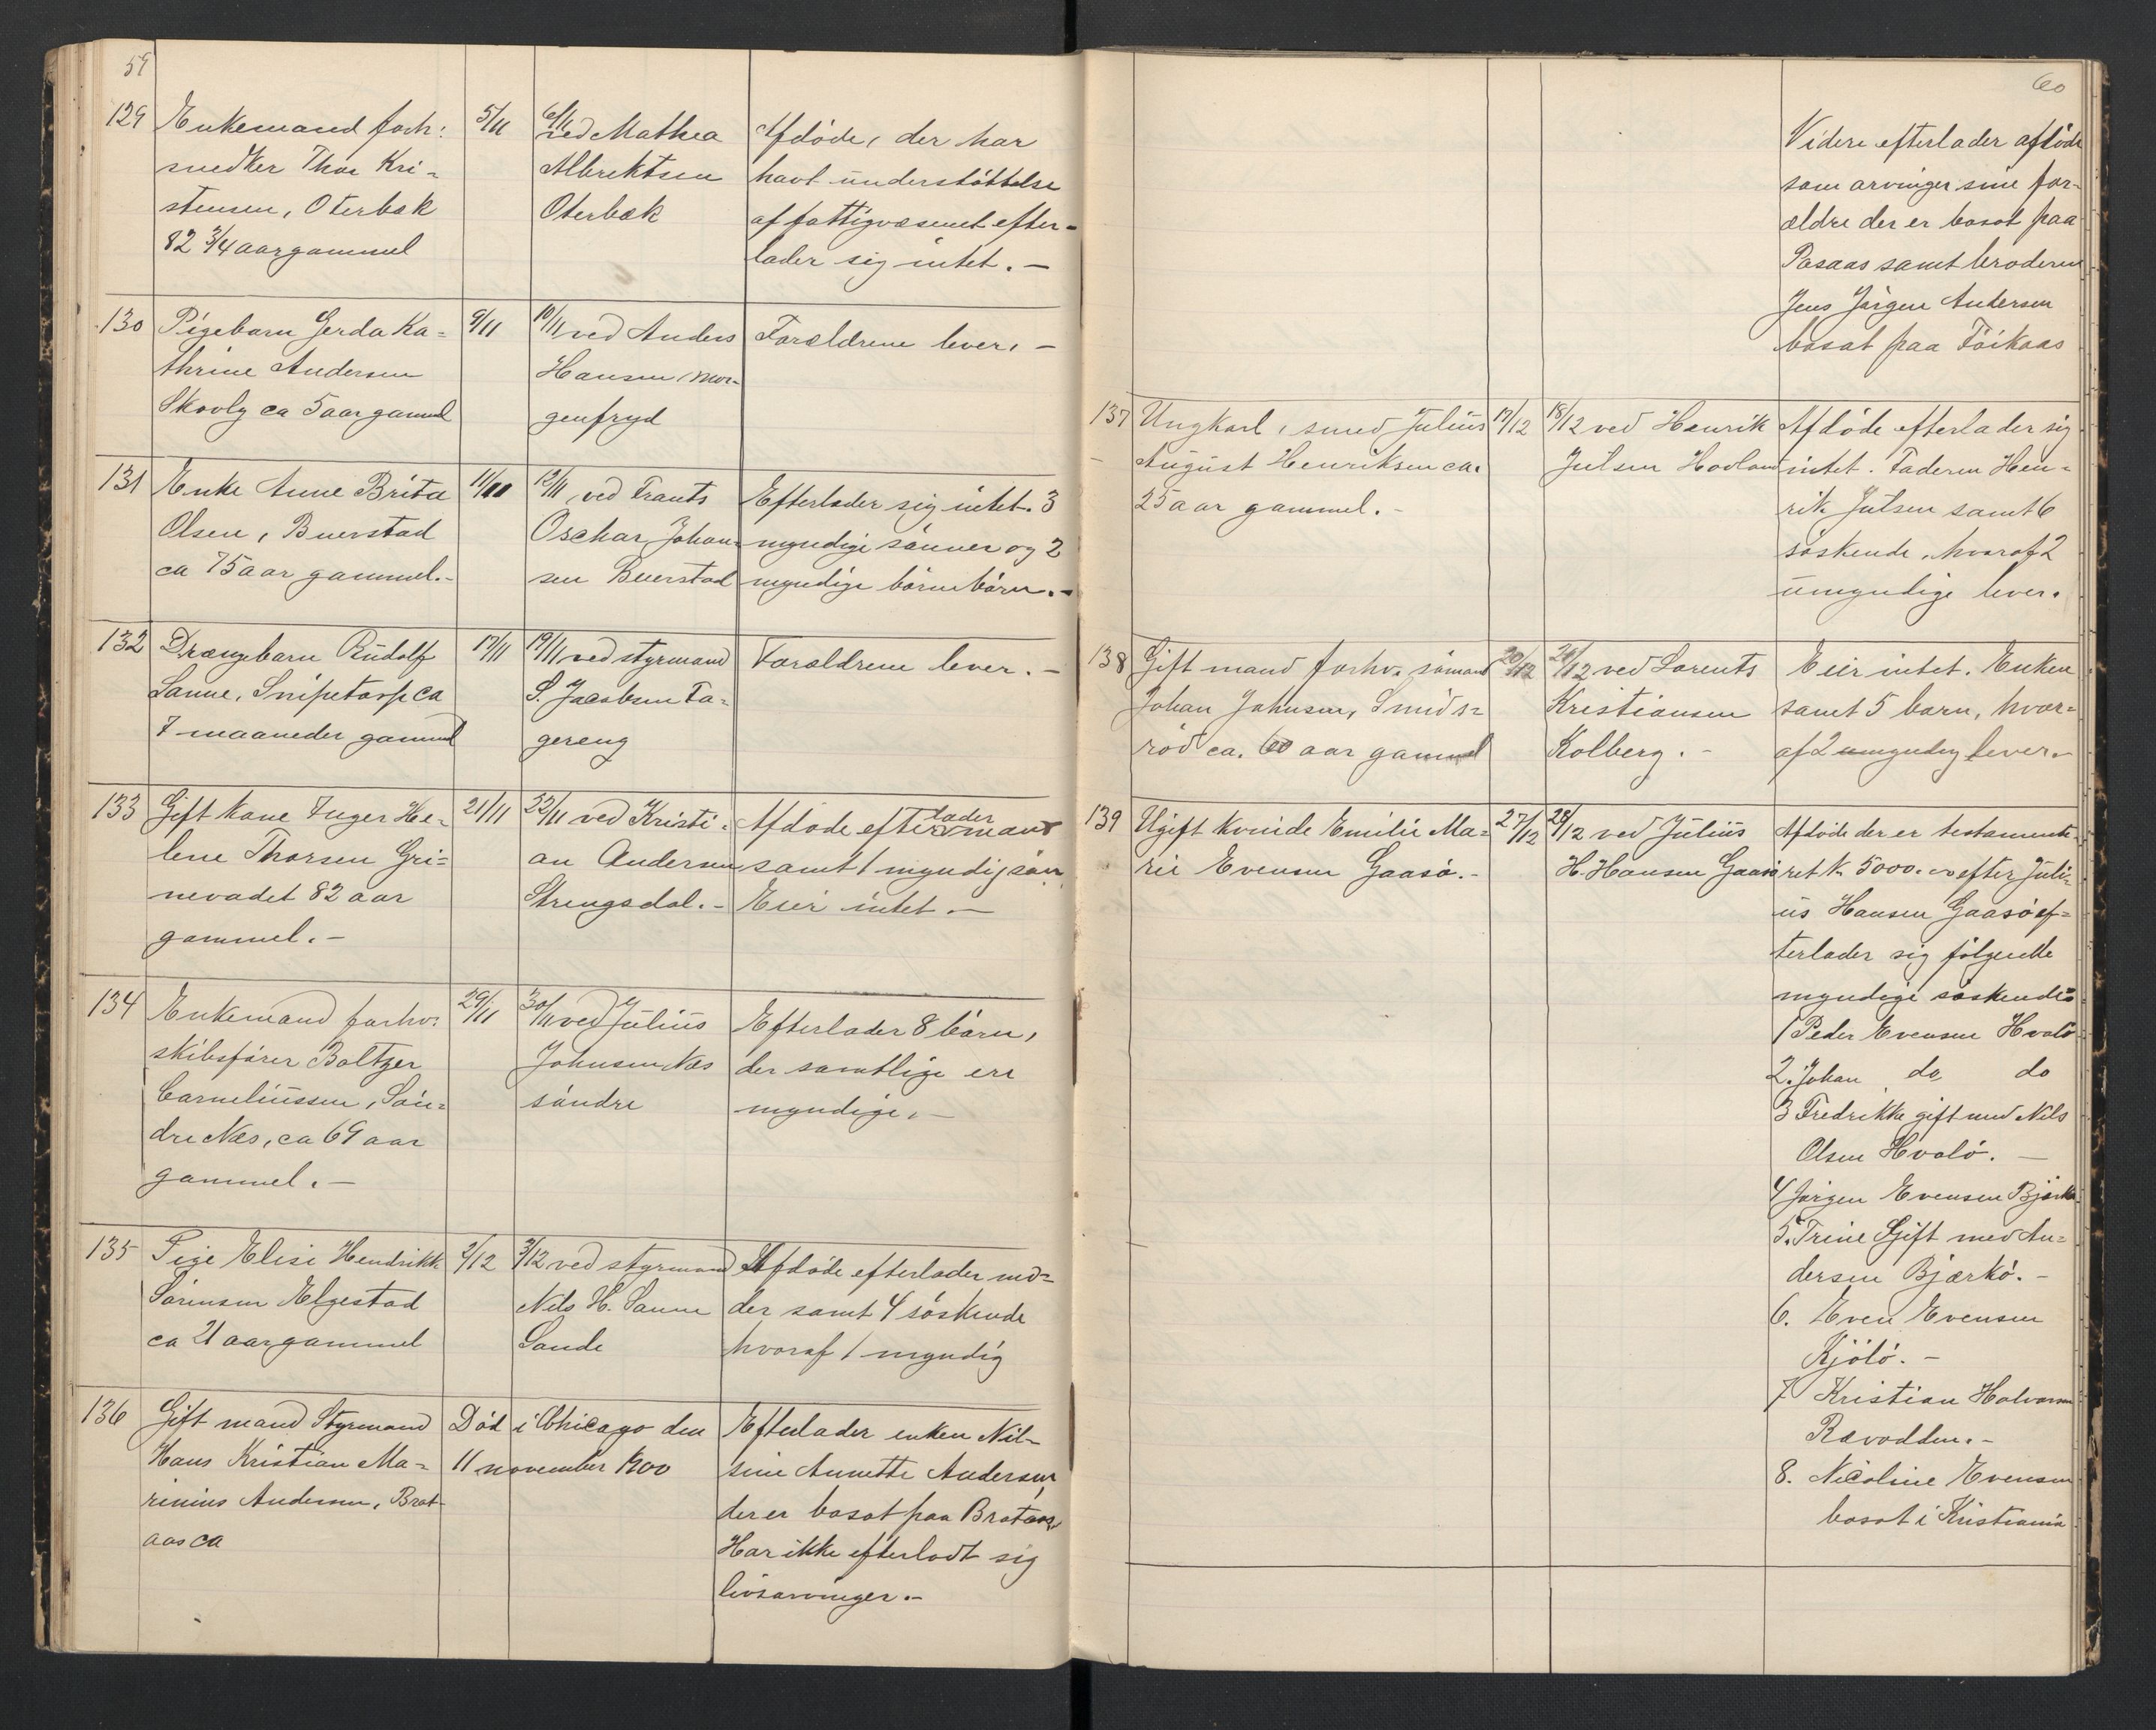 59
129 Enkemand forh:
snedker Thor Kri-
stensen, Oterbek
82 3/4 aar gammel
5/11
6/11
ved Mathea
Albrektsen
Oterbæk
Afdøde, der har
havt understøttelse
af fattigvæsenet efter-
lader sig intet. -
130 Pigebarn Gerda Ka-
thrine Andersen
Skovly ca 5 aar gammel
9/11
10/11 ved Anders
Hansen Mor-
genfryd
Forældrene lever. -
131 Enke Anne Brita
Olsen, Buerstad
ca 75 aar gammel. -
11/11
12/11 ved Frants
Oschar Johan-
sen Buerstad
Efterlader sig intet. 3
myndige sønner og 2
myndige børnebørn. -
132 Drengebarn Rudolf
Sanne, Snipetorp ca
7 maaneder gammel
17/11
19/11 ved styrmand
S. Jacobsen Fa-
gereng
Forældrene lever. -
133 Gift kone Inger He-
lene Thorsen Gri-
nevadet 82 aar
gammel. -
21/11
22/11 ved Kristi-
an Andersen
Strengsdal. -
Afdøde efterlader mand
samt 1 myndig søn
Eier intet. -
134 Enkemand forhv.
skibsfører Boltzer
Corneliussen, Søn-
dre Næs, ca 69 aar
gammel. -
29/11
30/11 ved Julius
Johnsen Næs
søndre
Efterlader 8 børn,
der samtlige ere
myndige. -
135 Pige Elise Hendrikke
Sørensen Elgestad
ca 21 aar gammel
2/12
3/12 ved styrmand
Nils H. Sanne
Sande
Afdøde efterlader mo-
der samt 4 søskende
hvoraf 1 myndig
136 Gift mand Styrmand
Hans Kristian Ma-
rinius Andersen, Brat-
aas ca
Død i Chicago den
11 november 1900
Efterlader enken Nil-
sine Annette Andersen,
der er bosat paa Brataas.
Har ikke efterladt sig
livsarvinger. -
60
Videre efterlader afdøde
som arvinger sine for-
ældre der er bosat paa
Pasaas samt broderen
Jens Jørgen Andersen
bosat paa Föikaas
137 Ungkarl, smed Julius
August Henriksen ca.
25 aar gammel. -
17/12
18/12 ved Henrik
Julsen Hovland
Afdøde efterlader sig
intet. Faderen Hen-
rik Julsen samt 6
søskende, hvoraf 2
umyndige lever.
138 Gift mand forhv. sømand
Johan Johnsen, Smids-
rød ca. 60 aar gammel
20/12
20/12 ved Lorents
Kristiansen
Kolberg. -
Eier intet. Enken
samt 5 barn, hvor-
af 2 umyndig lever. -
139 Ugift kvinde Emilie Ma-
rie Evensen Gaasø. -
27/12
28/12 ved Julius
H. Hansen Gaasø
Afdøde der er testamente-
ret K. 5000.00 efter Juli-
us Hansen Gaasø ef-
terlader sig følgende
myndige søskende:
1 Peder Evensen Hvalø
2. Johan do do
3 Fredrikke gift med Nils
Olsen Hvalø. -
4 Jørgen Evensen Bjerkø
5. Trine Gift med An-
dersen Bjærkø. -
6. Even Evensen
Kjølø. -
7 Kristian Halvorsen
Rævodden. -
8. Nicoline Evensen
bosat i Kristiania